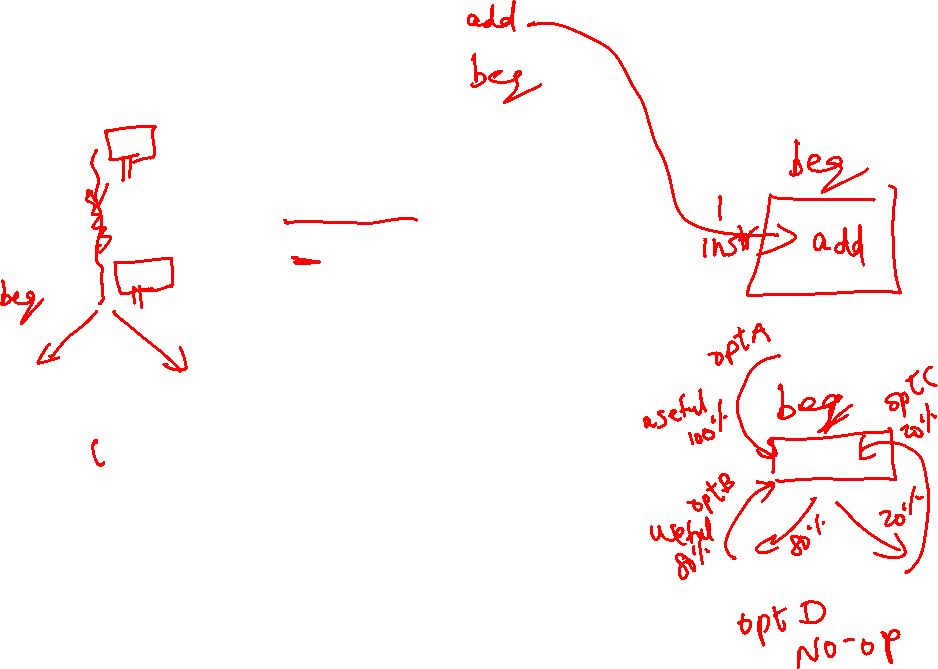 add
beq
beq
1
instr
add
beq
optA
useful
100%
beq
optC
20%
optB
useful
80%
80%
20%
opt D
No-op